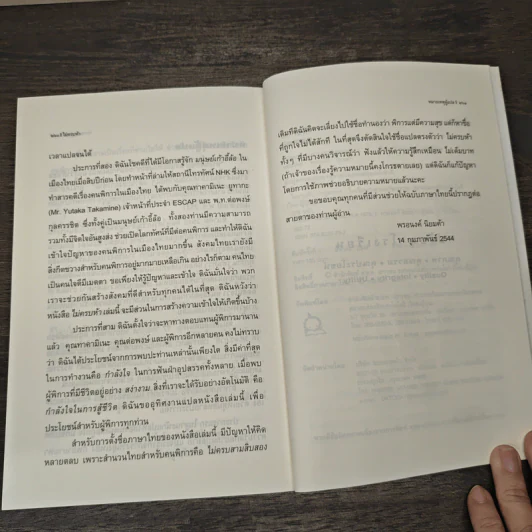 เวลาแปลจนได้
ประการที่สอง ดิฉันโชคดีที่ได้มีโอกาสรู้จัก มนุษย์เก้าอี้ล้อ ใน
เมืองไทยเมื่อสิบปีก่อน โดยทำหน้าที่ล่ามให้สถานีโทรทัศน์ NHK ซึ่งมา
ทำสารคดีเรื่องคนพิการในเมืองไทย ได้พบกับคุณทาคามิเนะ ยูทากะ
(Mr. Yutaka Takamine) เจ้าหน้าที่ประจำ ESCAP และ พ.ท.ต่อพงษ์
กุลครรชิต ซึ่งทั้งคู่เป็นมนุษย์เก้าอี้ล้อ ทั้งสองท่านมีความสามารถ
รวมทั้งมีจิตใจอันสูงส่ง ช่วยเปิดโลกทัศน์ที่มีต่อคนพิการ และทำให้ดิฉัน
เข้าใจปัญหาของคนพิการในเมืองไทยมากขึ้น สังคมไทยเรายังมี
สิ่งกีดขวางสำหรับคนพิการอยู่มากมายเหลือเกิน อย่างไรก็ตาม คนไทย
เป็นคนใจดีมีเมตตา ขอเพียงให้รู้ปัญหาและเข้าใจ ดิฉันมั่นใจว่า พวก
เราจะช่วยกันสร้างสังคมที่ดีสำหรับทุกคนได้ในที่สุด ดิฉันหวังว่า
หนังสือ ไม่ครบห้าเล่มนี้ จะมีส่วนในการสร้างความเข้าใจให้เกิดขึ้นบ้าง
ประการที่สาม ดิฉันตั้งใจว่าจะหาทางตอบแทนผู้พิการมานาน
แล้ว คุณทาคามิเนะ คุณต่อพงษ์ และผู้พิการอีกหลายคน คงไม่ทราบ
ว่า ดิฉันได้ประโยชน์จากการพบปะท่านเหล่านั้นเพียงใด สิ่งมีค่าที่สุด
ในการทำงานคือ กำลังใจ ในการฟันฝ่าอุปสรรคทั้งหลาย เมื่อพบ
ผู้พิการที่มีชีวิตอยู่อย่าง สง่างาม สิ่งที่เราจะได้รับอย่างอัตโนมัติ คือ
กำลังใจในการสู้ชีวิต ดิฉันขออุทิศงานแปลหนังสือเล่มนี้ เพื่อ
ประโยชน์สำหรับผู้พิการทุกท่าน
สำหรับการตั้งชื่อภาษาไทยของหนังสือเล่มนี้ มีปัญหาให้คิด
หลายตลบ เพราะสำนวนไทยสำหรับคนพิการคือ ไม่ครบสามสิบสอง
เดิมทีดิฉันคิดจะเลี่ยงไปใช้ชื่อทำนองว่า พิการแต่มีความสุข แต่ก็หาชื่อ
ที่ถูกใจไม่ได้สักที ในที่สุดจึงตัดสินใจใช้ชื่อแปลตรงตัวว่า ไม่ครบห้า
ทั้งๆ ที่มีบางคนวิจารณ์ว่า ฟังแล้วให้ความรู้สึกเหมือน ไม่เต็มบาท
(ถ้าเจ้าของเรื่องรู้ความหมายนี้คงโกรธตายเลย) แต่ดิฉันก็แก้ปัญหา
โดยการใช้ภาพช่วยอธิบายความหมายแล้วนะคะ
ขอขอบคุณทุกคนที่มีส่วนช่วยให้ฉบับภาษาไทยนี้ปรากฏต่อ
สายตาของท่านผู้อ่าน
พรอนงค์ นิยมค้า
14 กุมภาพันธ์ 2544